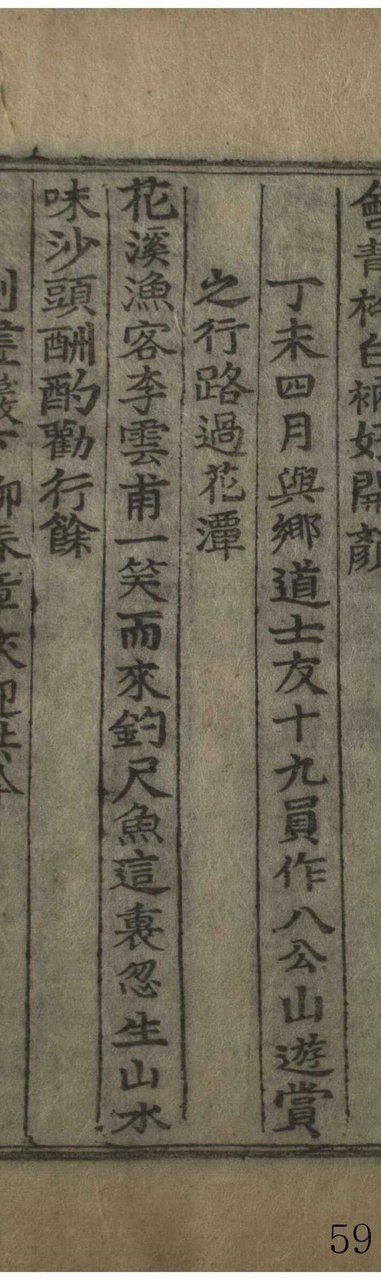 會青松白衲好開顏
丁未四月與鄉道士友十九員作八公山遊賞
之行路過花潭
花溪漁客李雲甫一笑而來釣尺魚這裏忽生山水
味沙頭酬酌勸行餘
59